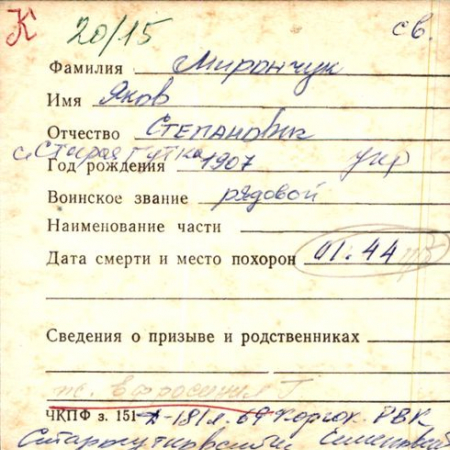 К 20/15 св.
Фамилия Мирончук
Имя Яков
Отчество Степанович
с. Старая Гутка
Год рождения 1907 укр
Воинское звание рядовой
Наименование части
Дата смерти и место похорон 01.44
Сведения о призыве и родственниках
ж. Ефросиния Г
ЧКПФ з. 151 181 л. 69 РВК